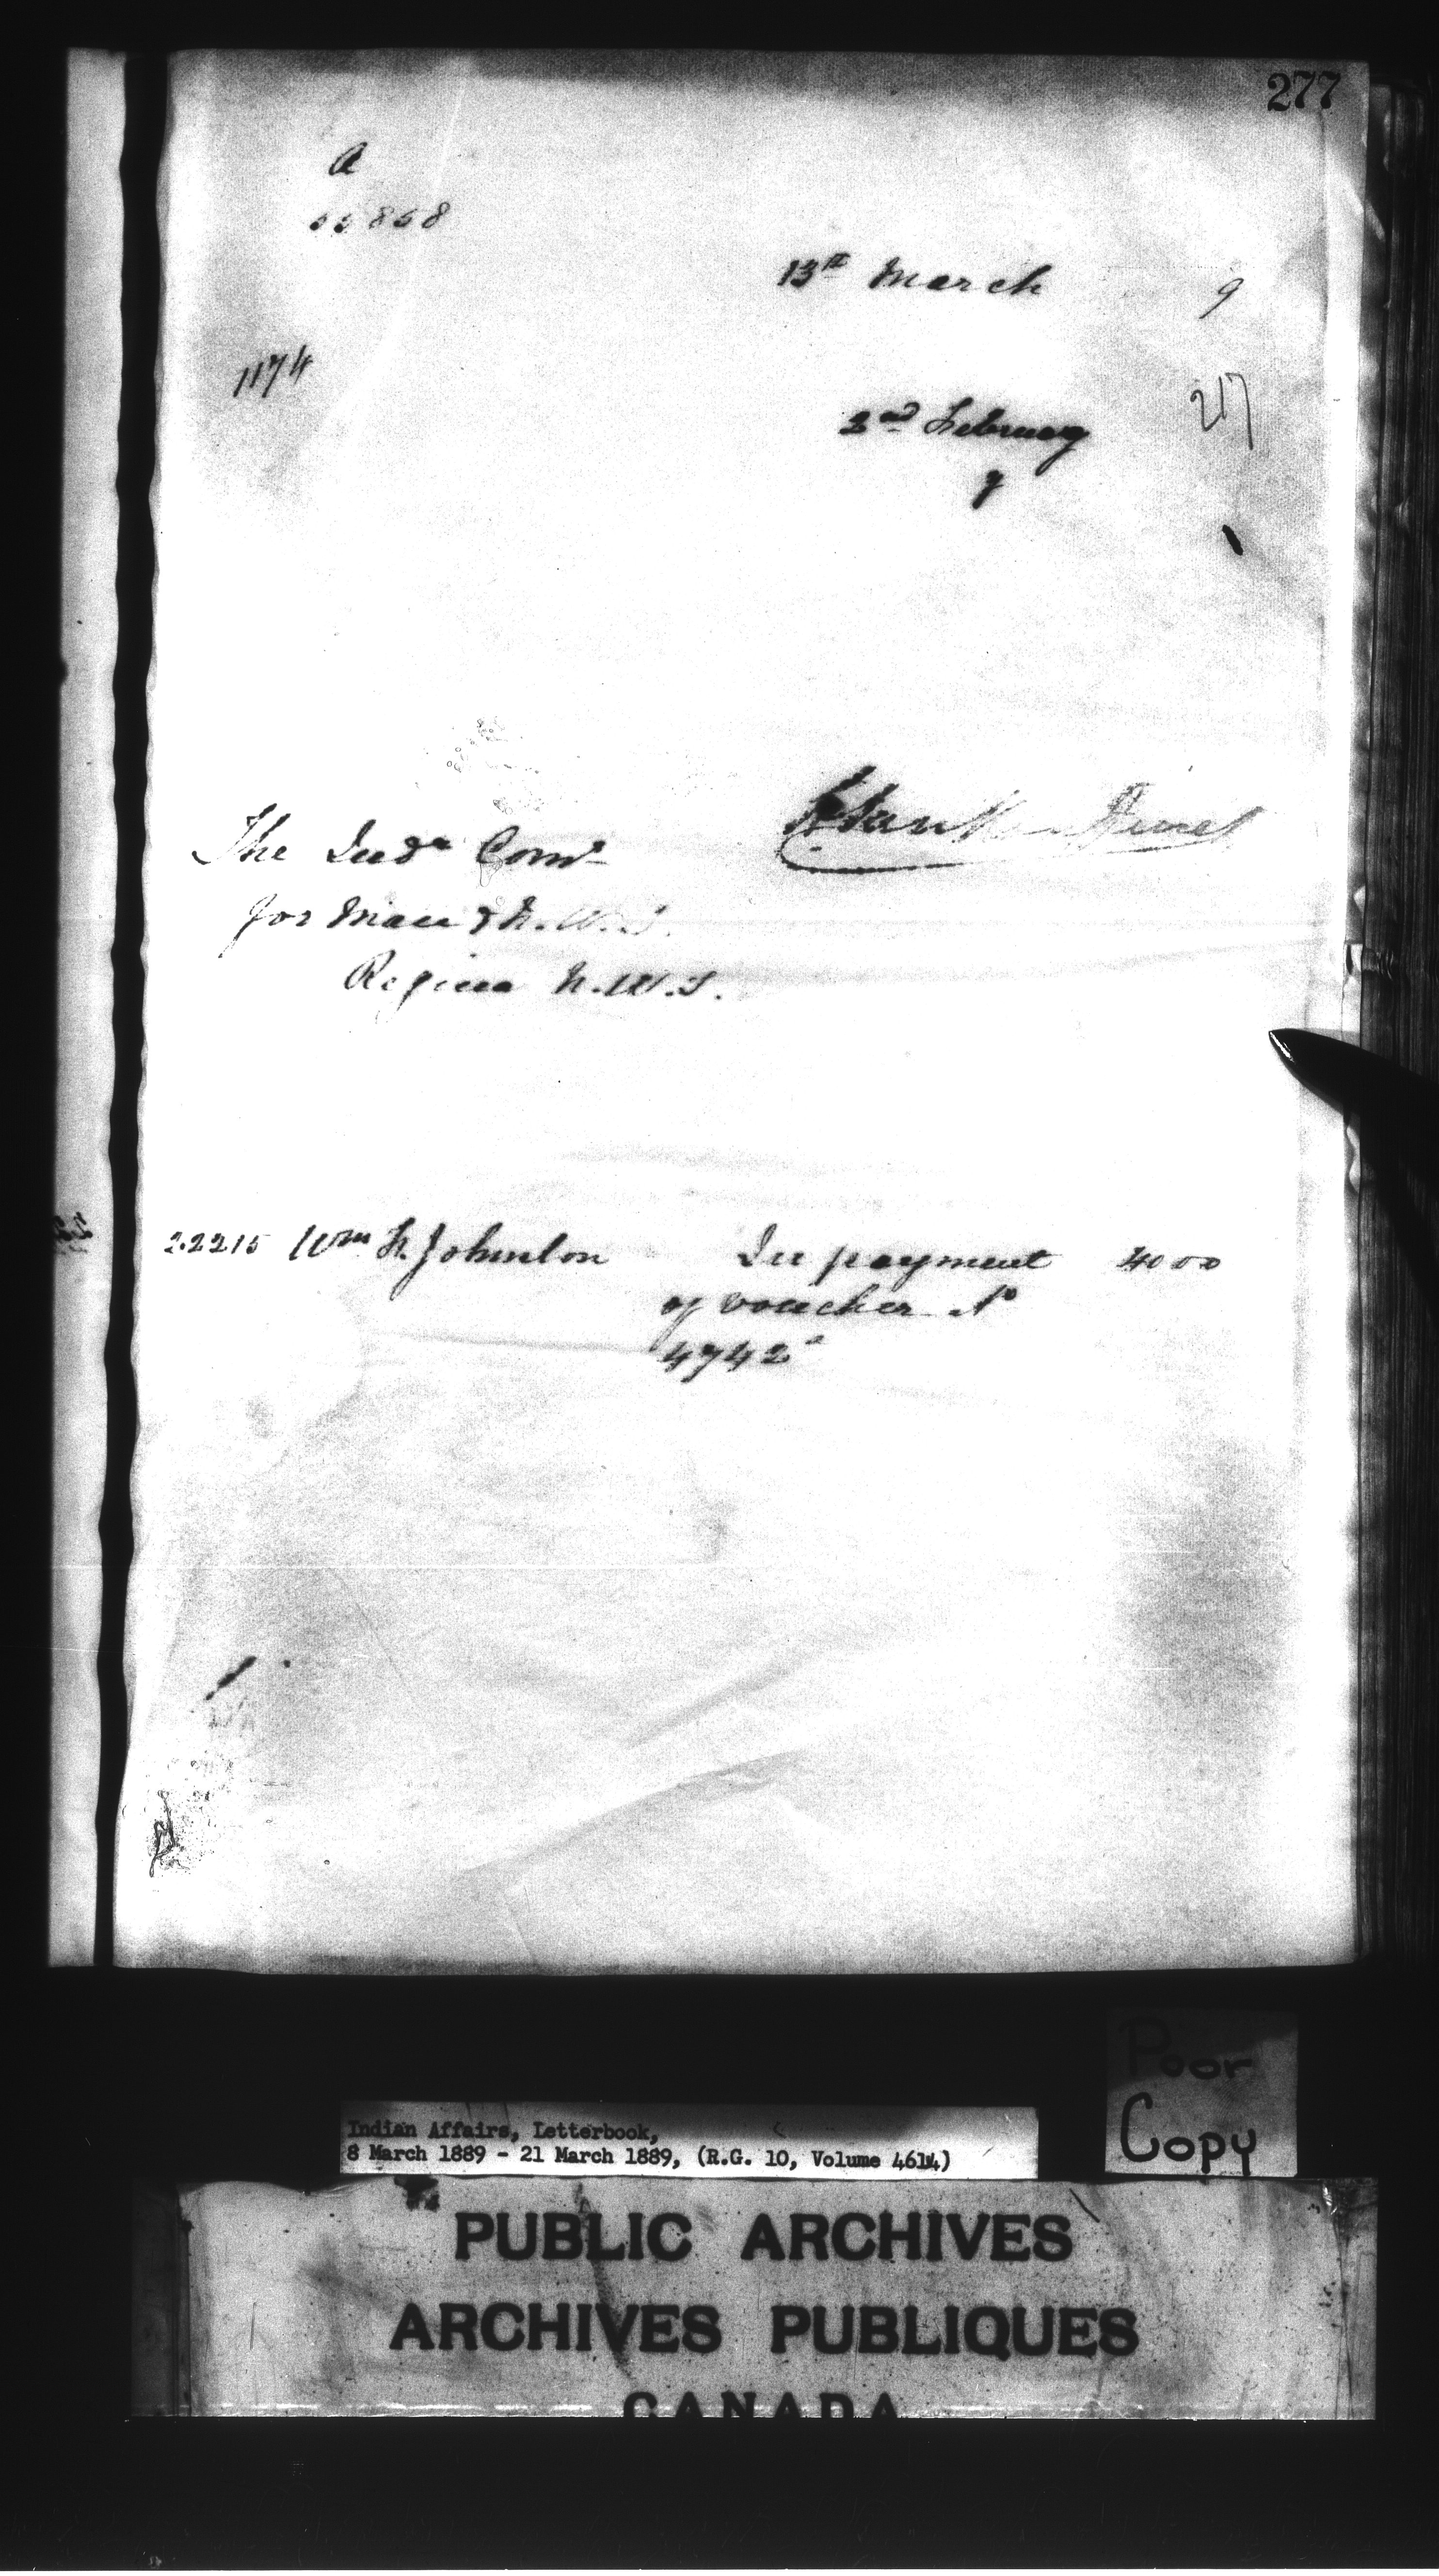 277
a
55858
13th March 9
1174
217
2nd February
9
The Indn Comr
for Man & N.W.T.
Regina N.W.T.
22215 Wm H. Johnston In payment 4000
of voucher No
4742
Poor
Copy
Indian Affairs, Letterbook,
8 March 1889 - 21 March 1889, (R.G. 10, Volume 4614)
PUBLIC ARCHIVES
ARCHIVES PUBLIQUES
CANADA